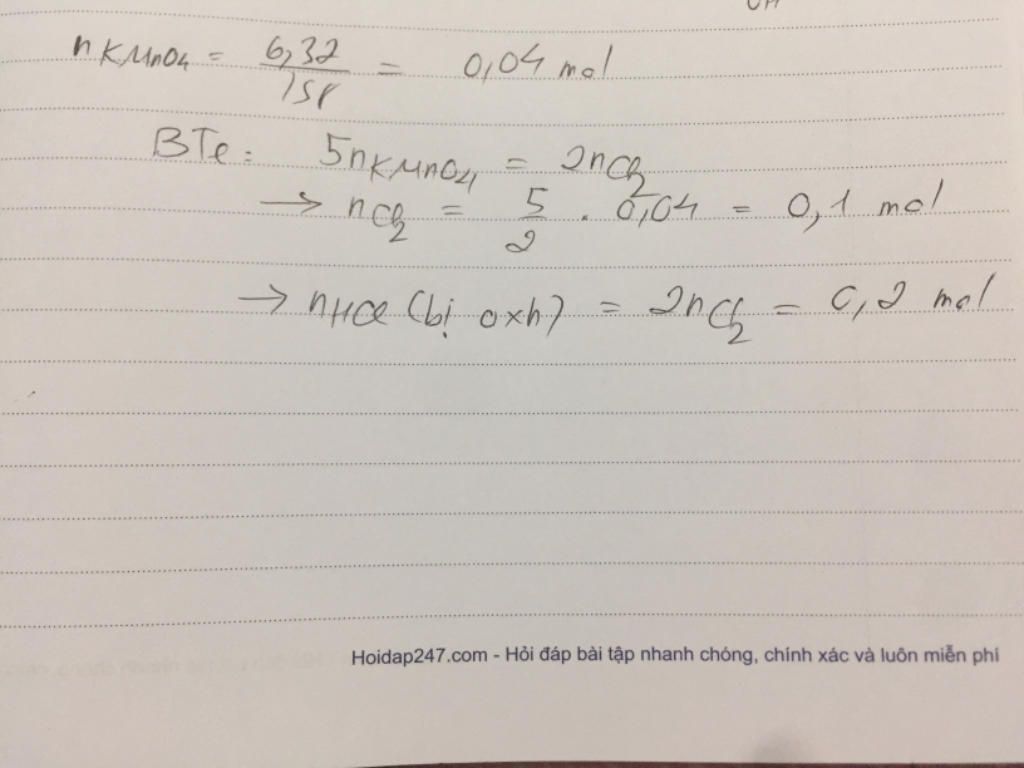 nKMnO4 = 6,32/158 = 0,04 mol
BTe: 5nKMnO4 = 2nCl2
→ nCl2 = 5/2 . 0,04 = 0,1 mol
→ nHCl (bị oxh) = 2nCl2 = 0,2 mol
Hoidap247.com - Hỏi đáp bài tập nhanh chóng, chính xác và luôn miễn phí